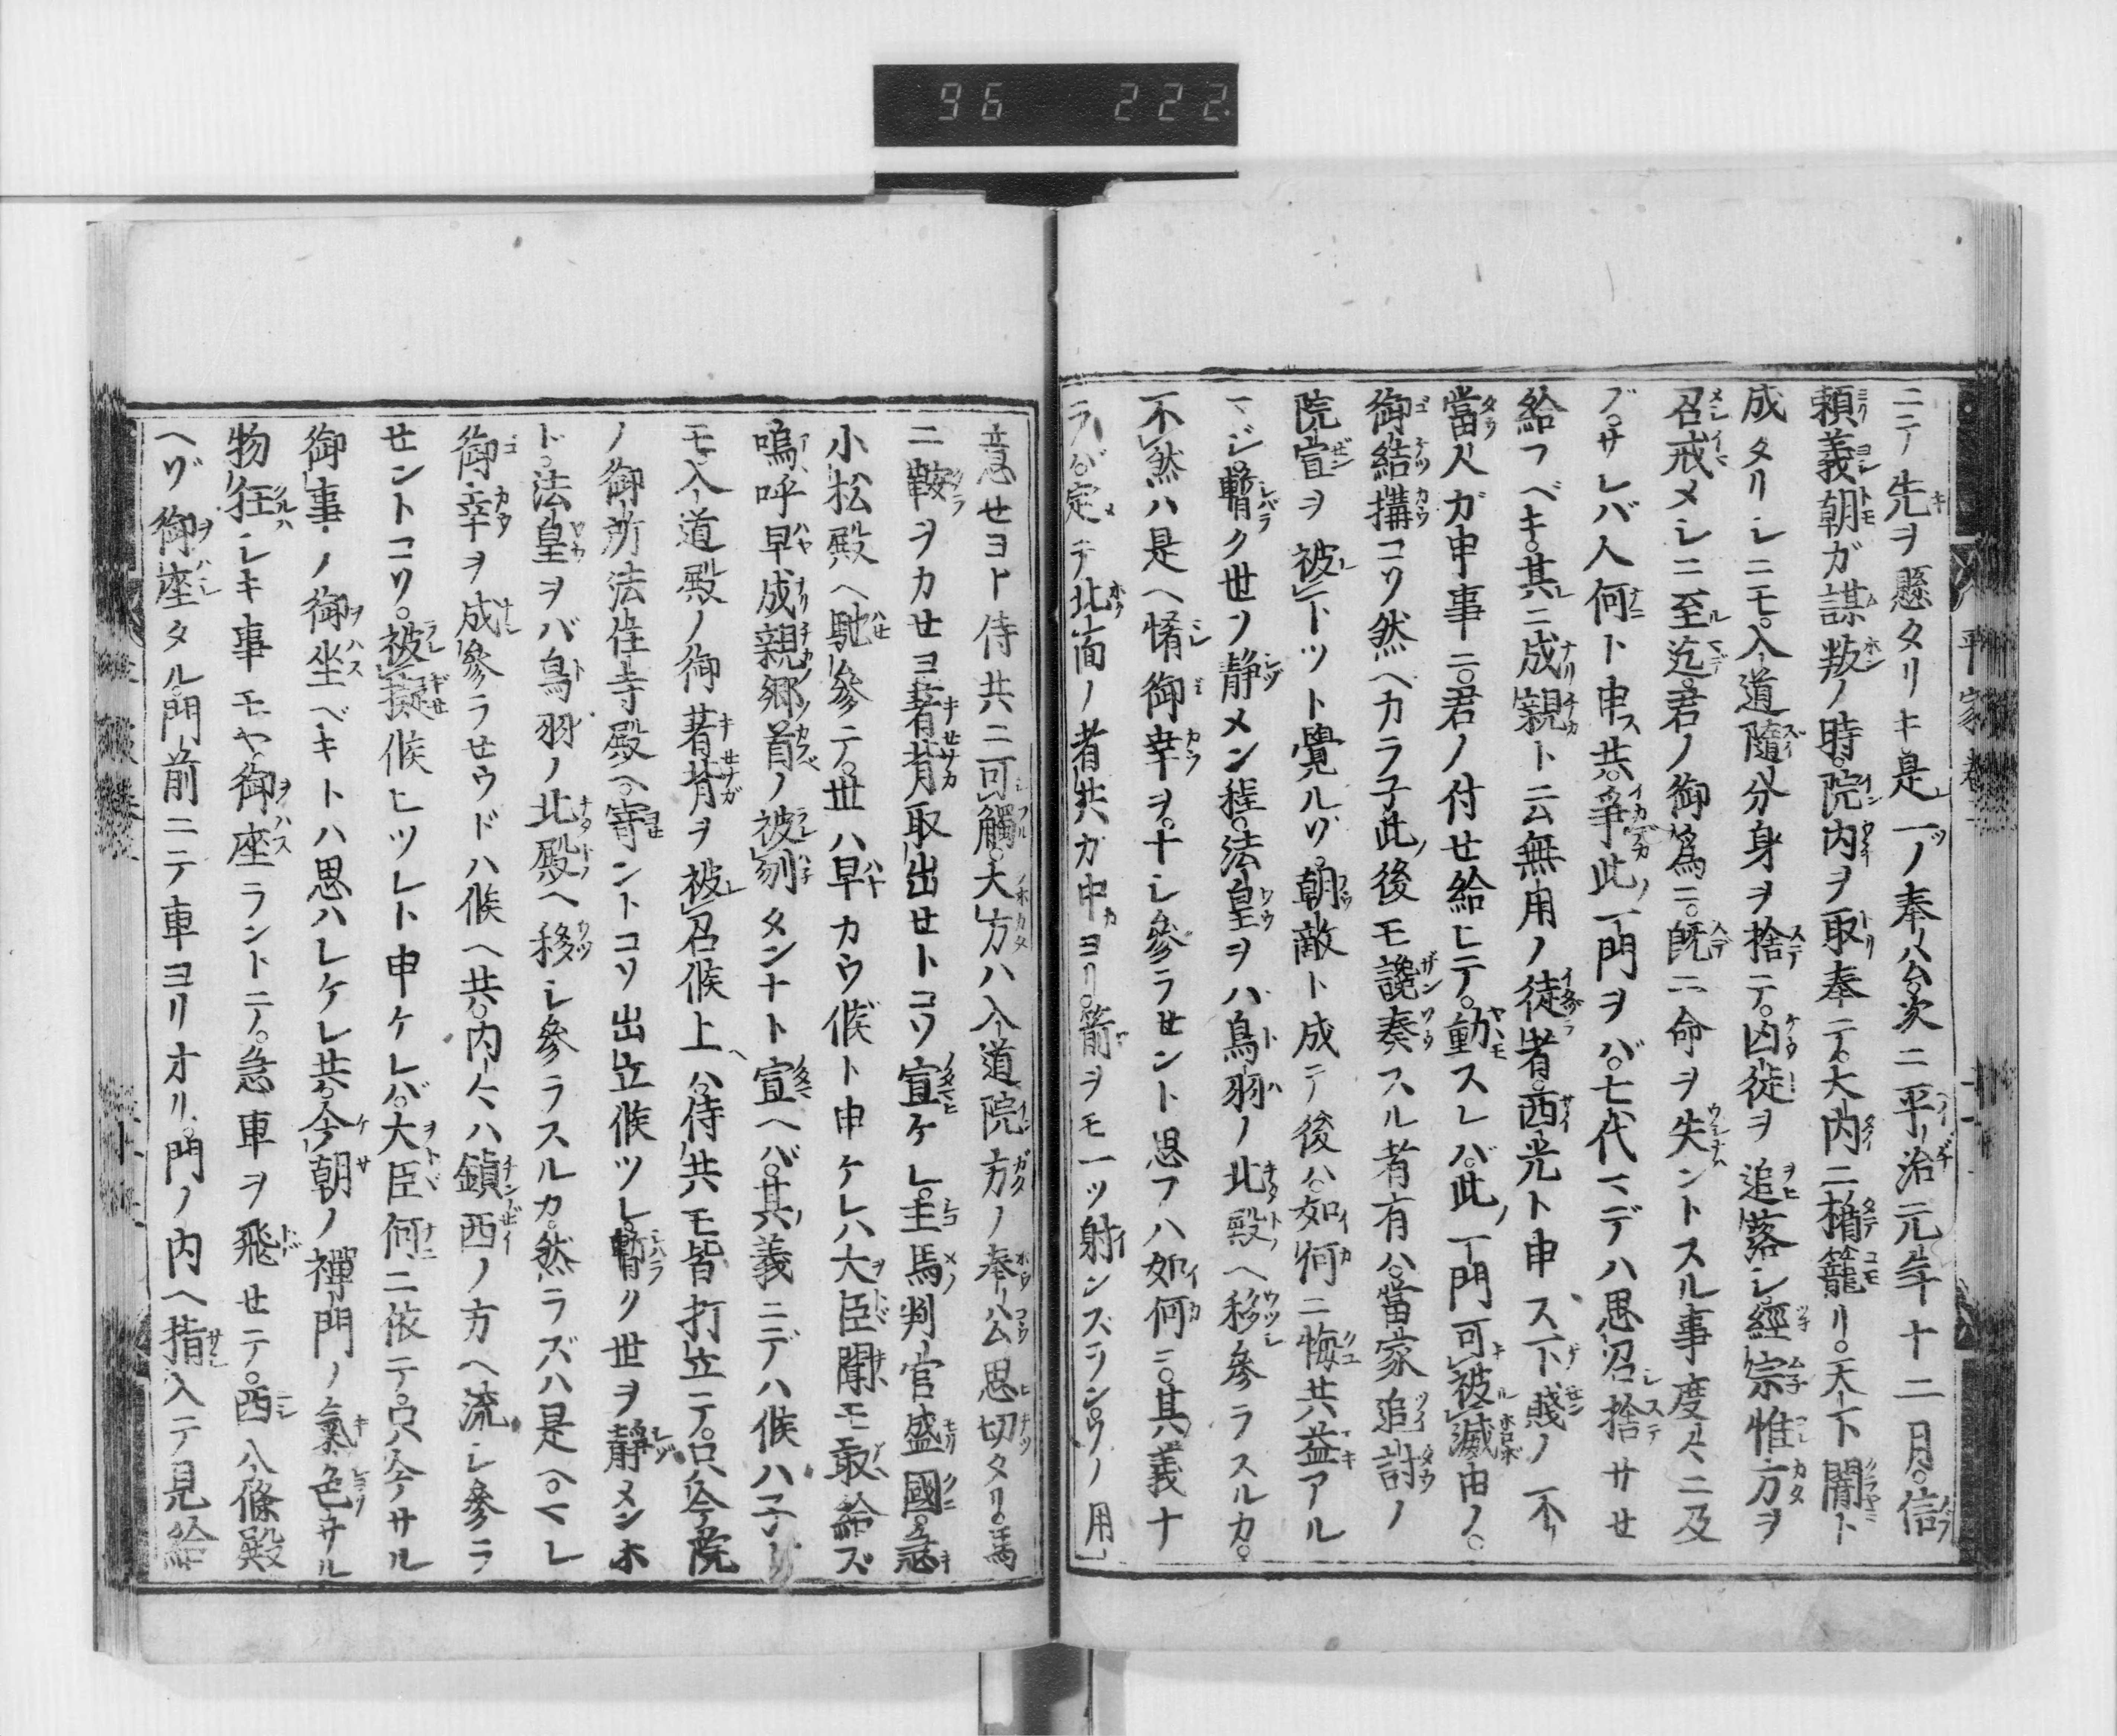 96 222
平家巻二
ニテ先ヲ懸タリキ是一ノ奉公次ニ平治元年十二月信
頼義朝ガ謀叛ノ時院内ヲ取奉テ大内ニ楯籠リ天下闇ト
成タリシニモ入道隨分身ヲ捨テ凶徒ヲ追落シ經宗惟方ヲ
召戒メシニ至迄君ノ御爲ニ既ニ命ヲ失ントスル事度々ニ及
ブサレバ人何ト申ス共爭此一門ヲバ七代マデハ思召捨サセ
給フベキ其ニ成親ト云無用ノ徒者西光ト申ス下賤ノ不
當人ガ申事ニ君ノ付セ給ヒテ動スレバ此一門可被滅由ノ
御結搆コソ然ヘカラ子此後モ讒奏スル者有ハ當家追討ノ
院宣ヲ被下ツト覺ルソ朝敵ト成テ後ハ如何ニ悔共益アル
マジ暫ク世ヲ靜メン程法皇ヲハ鳥羽ノ北殿ヘ移參ラスルカ
不然ハ是ヘ悕御幸ヲナシ參ラセント思フハ如何ニ其義ナ
ラバ定テ北面ノ者共ガ中ヨリ箭ヲモ一ツ射ンズラン其ノ用
意セヨト侍共ニ可觸大方ハ入道院方ノ奉公思切タリ馬
ニ鞍ヲカセヨ著背取出セトコソ宣ケレ主馬判官盛國急
小松殿ヘ馳參テ世ハ早カウ候ト申ケレハ大臣聞モ敢給ズ
嗚呼早成親郷首ノ被刎タンナト宣ヘバ其義ニテハ候ハ子ト
モ入道殿ノ御著背ヲ被召候上ハ侍共モ皆打立テ只今院
ノ御所法住寺殿ヘ寄ントコソ出立候ツレ暫ク世ヲ靜メンホ
ド法皇ヲバ鳥羽ノ北殿ヘ移シ參ラスルカ然ラズハ是ヘマレ
御幸ヲ成參ラセウドハ候ヘ共内々ハ鎮西ノ方ヘ流シ參ラ
セントコソ被擬候ヒツレト申ケレバ大臣何ニ依テ只今サル
御事ノ御坐ベキトハ思ハレケレ共今朝ノ禪門ノ氣色サル
物狂シキ事モヤ御座ラントテ急車ヲ飛セテ西八條殿
ヘゾ御座タル門前ニテ車ヨリオリ門ノ内ヘ指入テ見給